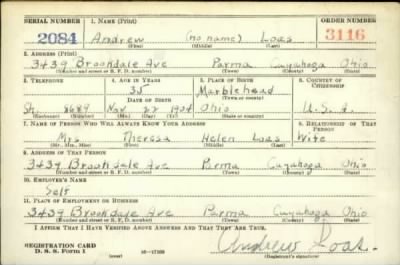 SERIAL NUMBER 1. NAME (Print) ORDER NUMBER
2084 Andrew (no name) Loas 3116
(First) (Middle) (Last)
2. ADDRESS (Print)
3439 Brookdale Ave Parma Cuyahoga Ohio
(Number and street or R. F. D. number) (Town) (County) (State)
3. TELEPHONE 4. AGE IN YEARS 5. PLACE OF BIRTH 6. COUNTRY OF CITIZENSHIP
35 Marblehead
DATE OF BIRTH (Town or county)
Sh. 8689 Nov 22 1904 Ohio U.S.A.
(Exchange) (Number) (Mo.) (Day) (Yr.) (State or country)
7. NAME OF PERSON WHO WILL ALWAYS KNOW YOUR ADDRESS 8. RELATIONSHIP OF THAT PERSON
Mrs. Theresa Helen Loas Wife
(Mr., Mrs., Miss) (First) (Middle) (Last)
9. ADDRESS OF THAT PERSON
3439 Brookdale Ave Parma Cuyahoga Ohio
(Number and street or R. F. D. number) (Town) (County) (State)
10. EMPLOYER'S NAME
Self
11. PLACE OF EMPLOYMENT OR BUSINESS
3439 Brookdale Ave Parma Cuyahoga Ohio
(Number and street or R. F. D. number) (Town) (County) (State)
I AFFIRM THAT I HAVE VERIFIED ABOVE ANSWERS AND THAT THEY ARE TRUE.
REGISTRATION CARD Andrew Loas
D. S. S. Form 1 (over) (Registrant's signature)